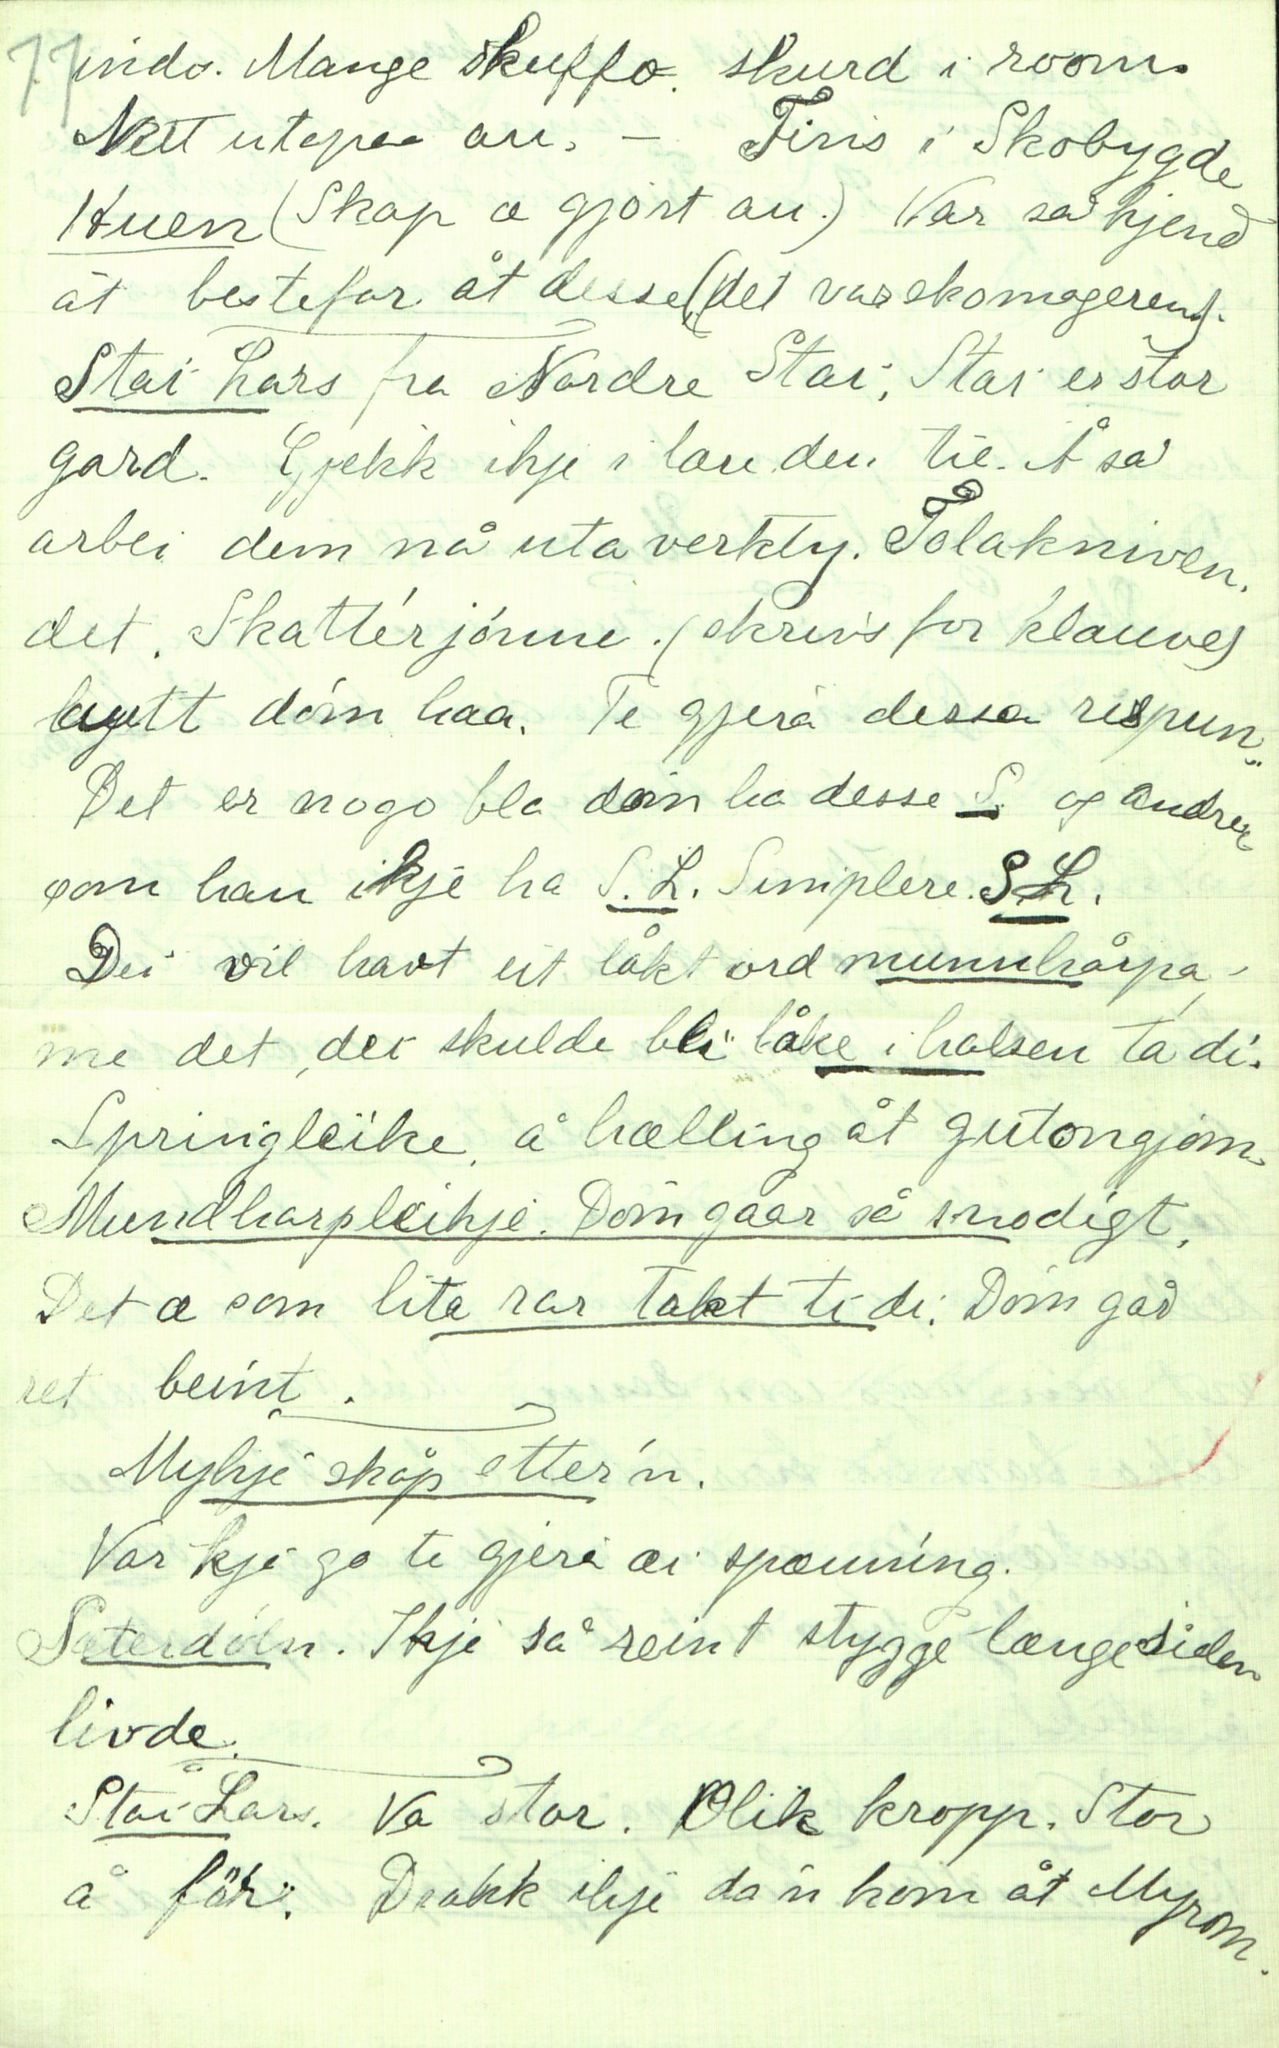 77 indo. Mange skuffo. skurd i room.
Nett utapaa au. — Finis i Skobygde
Huen (Skap æ gjort au.) Var så kjend
åt bestefar åt desse (det var skomageren).
Stai Lars fra Nordre Stai, Stai er stor
gard. Gjekk ikje i lære den tie. Å så
arbei dem nå uta verkty. Tolakniven.
det. Skattérjónne. (skrivs for klauve)
bytt dóm haa. Te gjera dessa
Det er nogo bla dóm ha desse S. og andre
som han ikje ha S.L. Simplere. S.L.
Dei vil havt eit låkt ord munnhårpa,
me det, dei skulde bli låke i halsen tá di.
Springleike, å hælling åt gutongjom.
Mundharpleikje. Dóm gaar så snodigt.
Det æ som lite rar takt ti di. Dóm går
ret beint.
Mykje skåp etter'n.
Var kje go te gjera æi spænning.
Søterdóln. Ikje så reint stygge længe siden
livde.
Stai Lars. Va stor. Olik kropp. Stor
å før. Drakk ikje da'n kom åt Myrom.